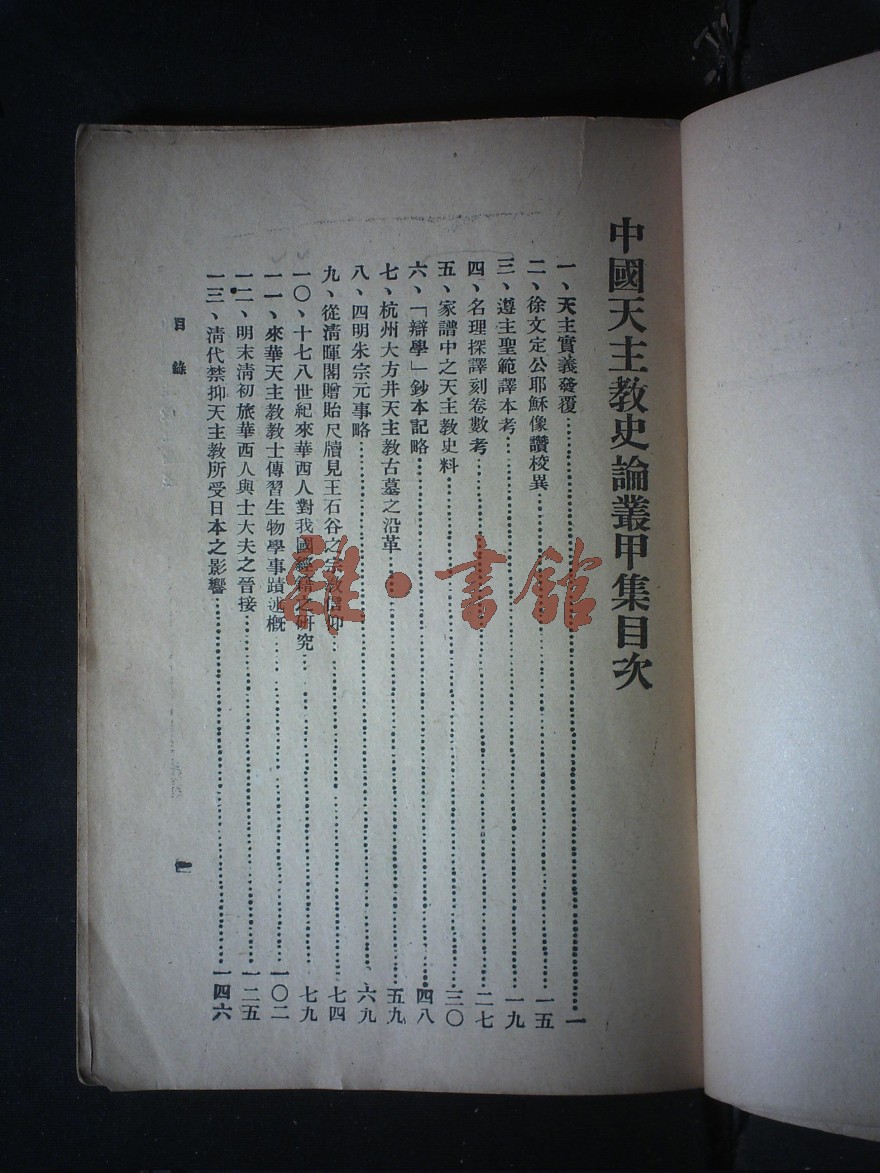 中國天主教史論叢甲集目次
一、天主實義發覆……一
二、徐文定公耶穌像讚校異……一五
三、遵主聖範譯本考……一九
四、名理探譯刻卷數考……二七
五、家譜中之天主教史料……三〇
六、「辯學」鈔本記略……四八
七、杭州大方井天主教古墓之沿革……五九
八、四明朱宗元事略……六九
九、從清暉閣贈貽尺牘見王石谷之宗教信仰……七四
一〇、十七八世紀來華西人對我國經籍之研究……七九
一一、來華天主教教士傳習生物學事蹟述概……一〇二
一二、明末清初旅華西人與士大夫之晉接……一二五
一三、清代禁抑天主教所受日本之影響……一四六
目錄
一
雜·書館